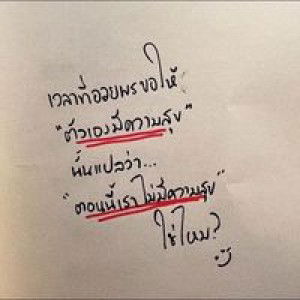 เวลาที่อวยพรขอให้
"ตัวเองมีความสุข"
นั่นแปลว่า...
"ตอนนี้เราไม่มีความสุข"
ใช่ไหม?